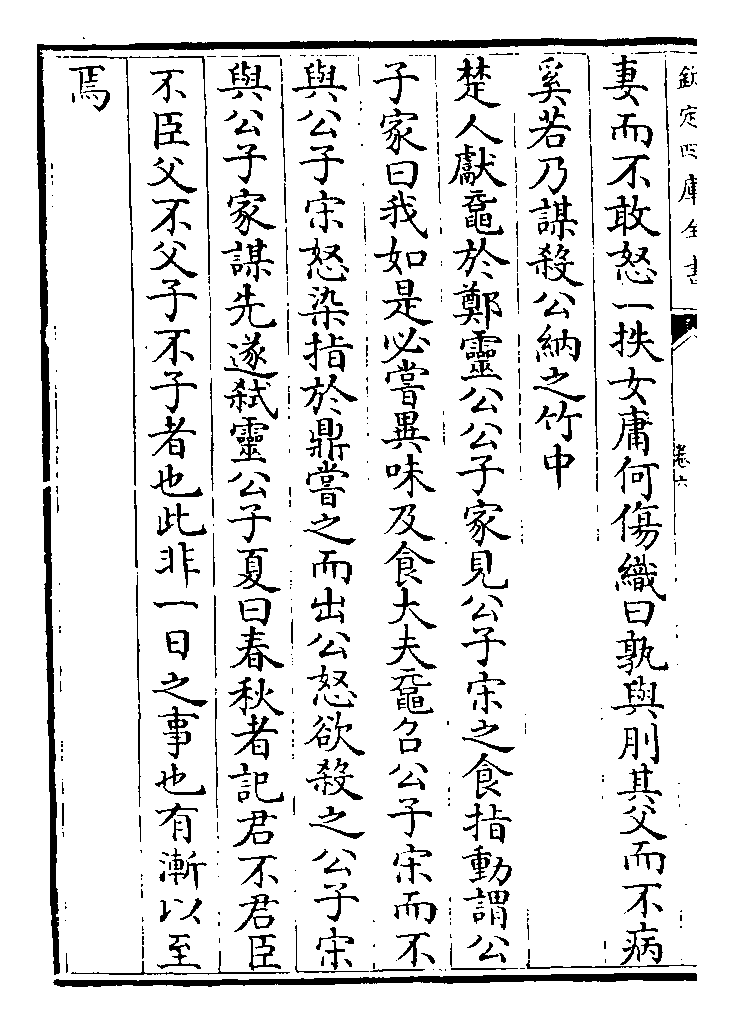 欽定四庫全書
卷六
妻而不敢怒一抶女庸何傷織曰孰與刖其父而不病
奚若乃謀殺公納之竹中
楚人獻黿於鄭靈公公子家見公子宋之食指動謂公
子家曰我如是必嘗異味及食大夫黿召公子宋而不
與公子宋怒染指於鼎嘗之而出公怒欲殺之公子宋
與公子家謀先遂弑靈公子夏曰春秋者記君不君臣
不臣父不父子不子者也此非一日之事也有漸以至
焉